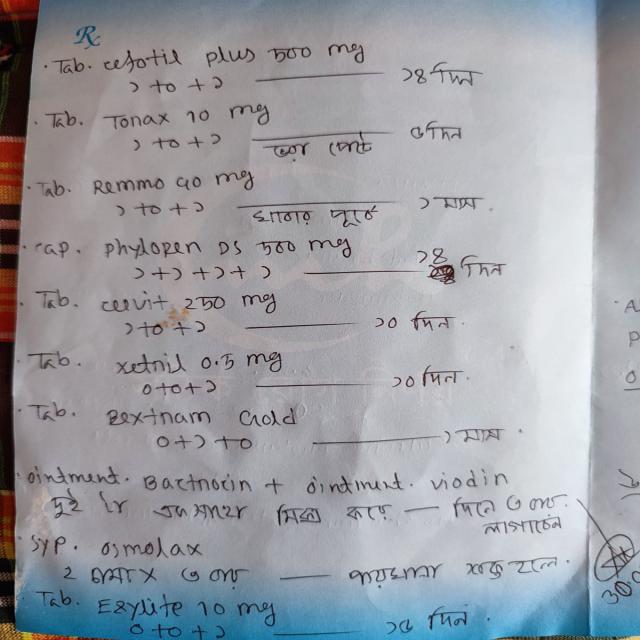 Rx
· Tab. cefotil plus 500 mg
১ + ০ + ১ ——— ১৪ দিন
· Tab. Tonax 10 mg
১ + ০ + ১ ——— ভরা পেটে ৫ দিন
· Tab. Remmo 40 mg
১ + ০ + ১ ——— খাবার পূর্বে ১ মাস.
· cap. phylopen DS 500 mg
১ + ১ + ১ + ১ ——— ১৪ দিন
· Tab. cervit 250 mg
১ + ০ + ১ ——— ১০ দিন.
· Tab. xetnil 0.5 mg
০ + ০ + ১ ——— ১০ দিন.
· Tab. Bextram Gold
০ + ১ + ০ ——— ১ মাস.
· ointment. Bactrocin + ointment. viodin
দুই টা একসাথে মিক্স করে — দিনে ৩ বার.
লাগাবেন
· Syp. osmolax
২ চামচ x ৩ বার —— পায়খানা শক্ত হলে.
· Tab. Ezylite 10 mg
০ + ০ + ১ ——— ১৫ দিন.